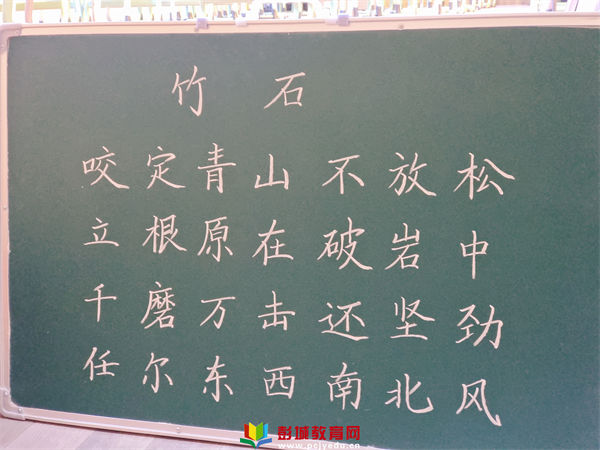 竹石
咬定青山不放松
立根原在破岩中
千磨万击还坚劲
任尔东西南北风
彭城教育网
www.pcjyedu.cn